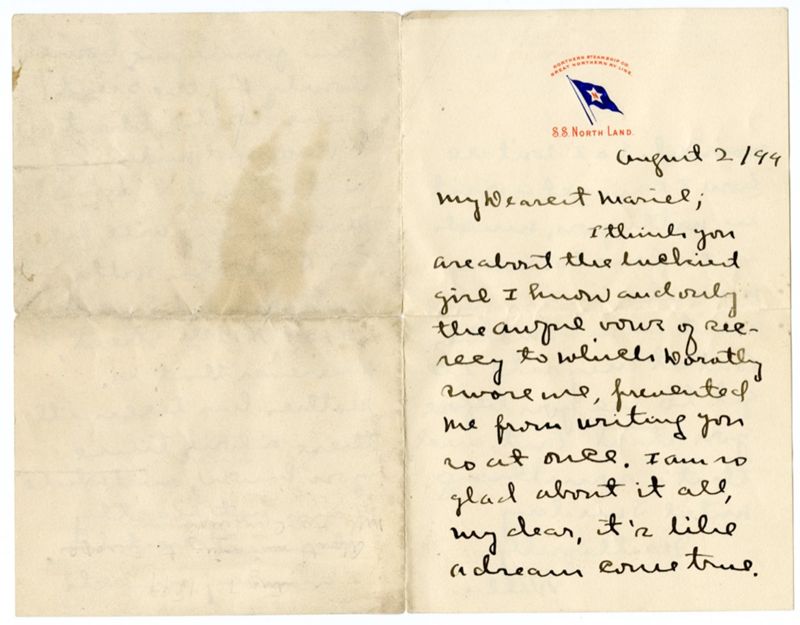 NORTHERN STEAMSHIP CO.
GREAT NORTHERN RY. LINE.
N
S.S. NORTH LAND.
August 2/99
My Dearest Mariel;
I think you
are about the luckiest
girl I know and only
the awful vows of sec-
recy to which Dorothy
swore me, prevented
me from writing you
so at once. I am so
glad about it all,
my dear, it's like
a dream come true.